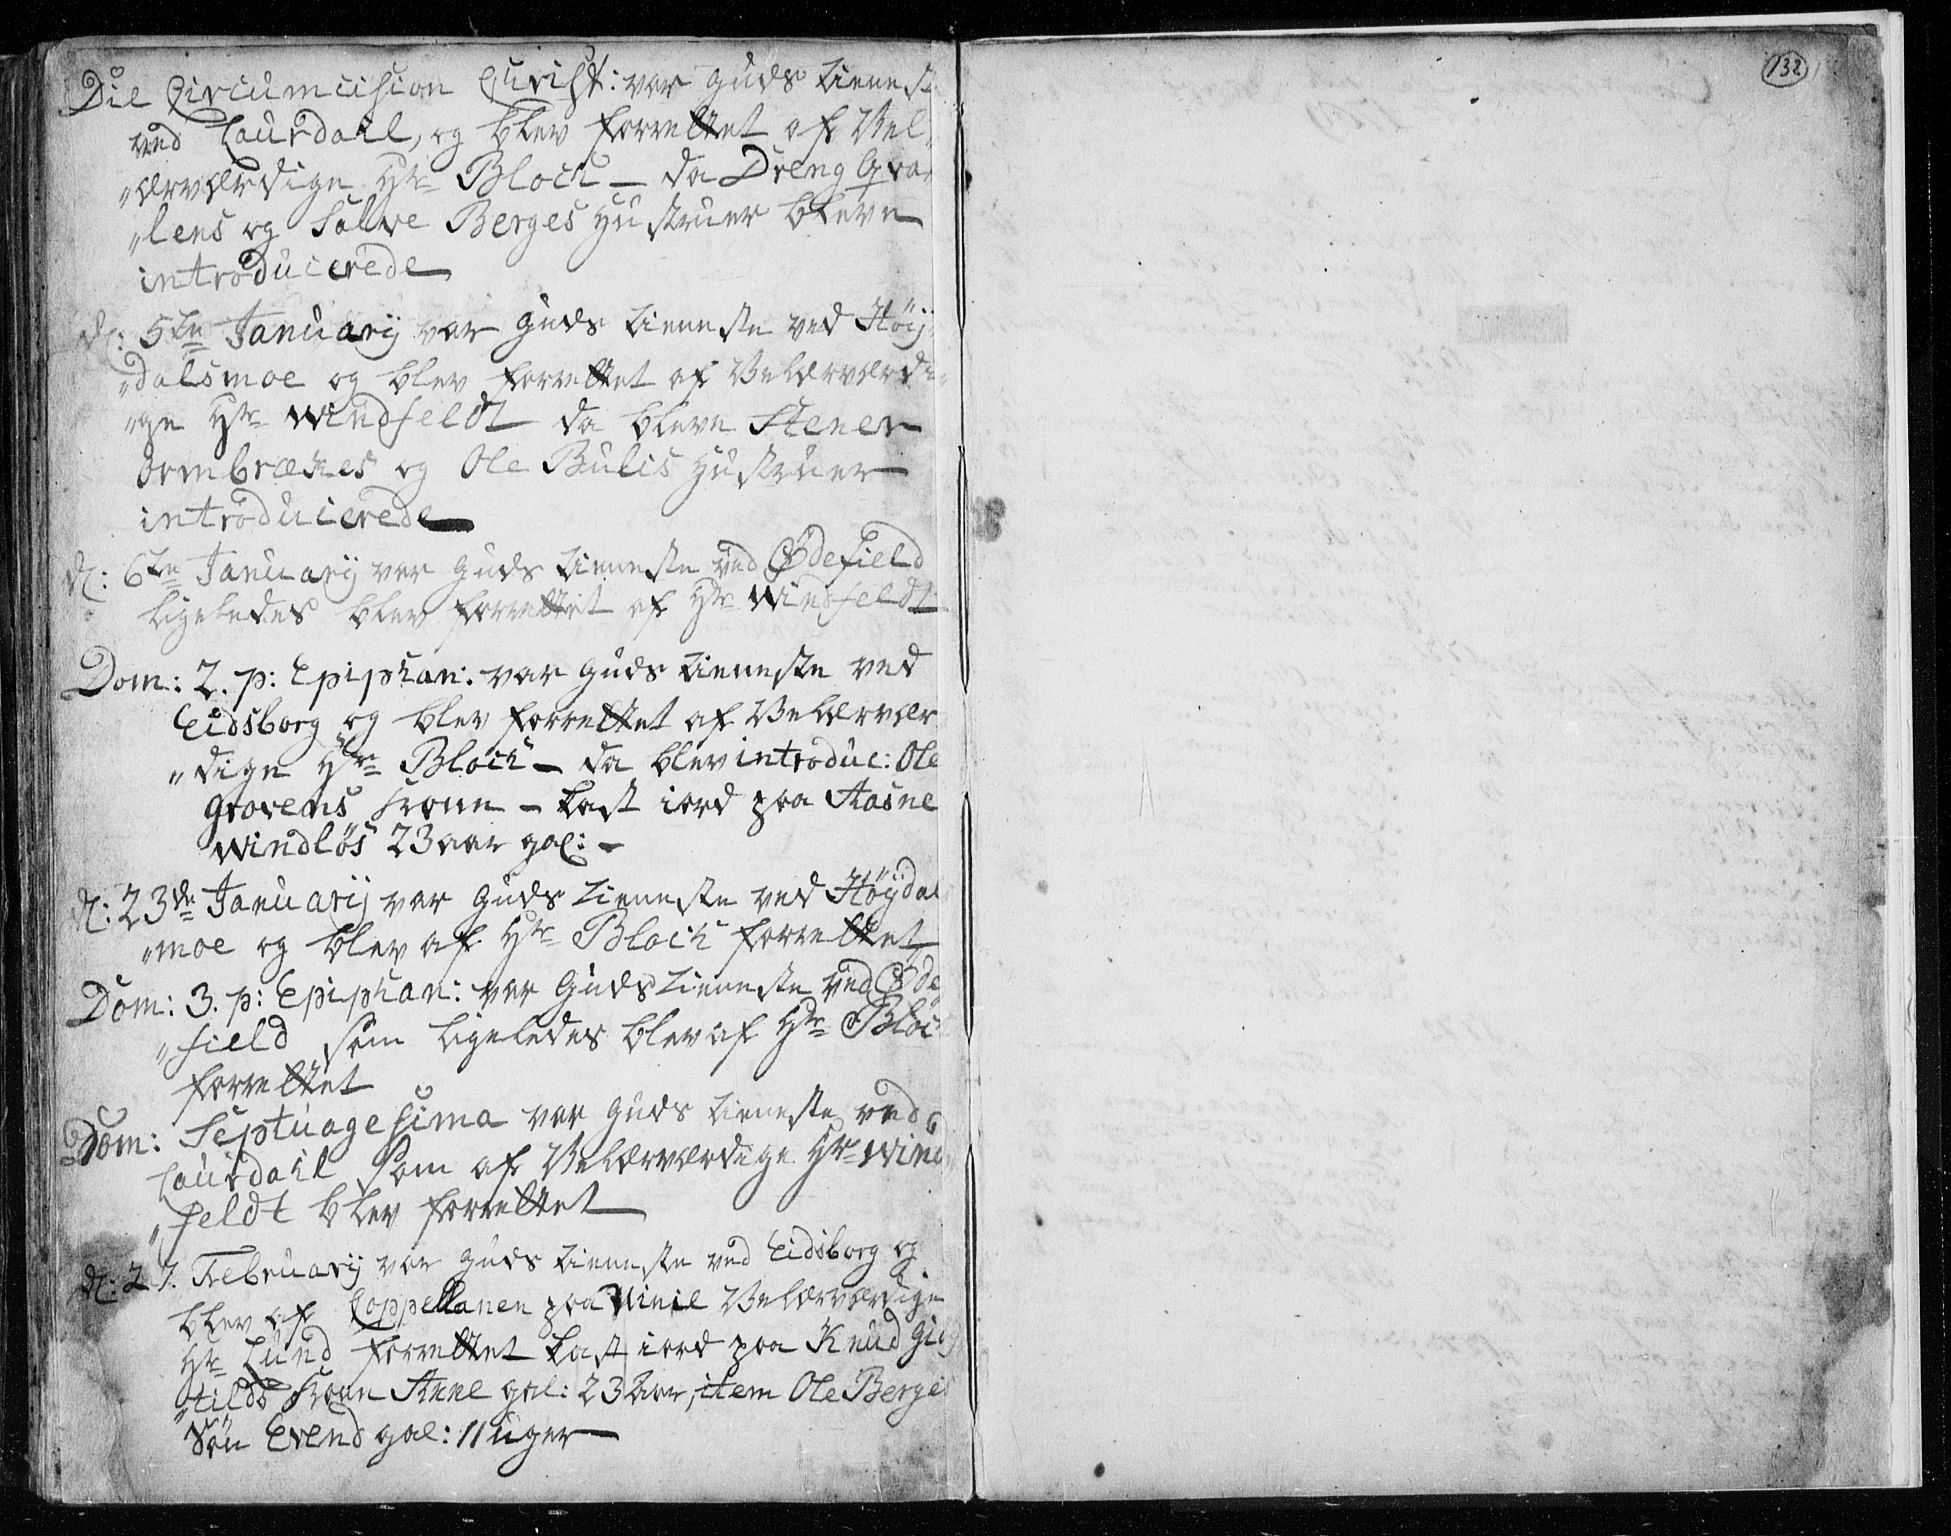 Die Circumcision Christ: var Guds tienest
ved Laurdahl, og blev forrettet af Vel-
"ærværdige Hr Bloch – da Dreng Qva-
"lens og Salve Berges Hustruer bleve
introducerede
d: 5te Januarij var Guds tieneste ved Höij-
"dalsmoe og blev forrettet af Velærværdi-
"ge Hr Windfeldt da bleve Stener
Ormbrækes og Ole Bulis Hustruer
introducerede
d: 6te Januarij var Guds tieneste ved Ødefield
ligeledes blev forrettet af Hr Windfeldt
Dom: 2. p: Epiphan: var Guds tieneste ved
Eidsborg og blev forrettet af Velærvær
"dige Hr Bloch – da blev introduc: Ole
Grovens Kone – kast iord paa Aasne
Windlös 23 aar gal: –
d: 23de Januarij var Guds tieneste ved Höydal
"moe og blev af Hr Bloch forrettet
Dom: 3. p: Epiphan: var Guds tieneste ved Øde
"field som ligeledes blev af Hr Bloch
forrettet
Dom: Septuagesima var Guds tieneste ved
Laurdahl som af Velærværdige Hr Wind
"feldt blev forrettet
d: 27. Februarij var Guds tieneste ved Eidsborg og
blev af Cappellanen paa Vinie Velærværdige
Hr Lund forrettet kast iord paa Knud
"tilds Kone Anne gal: 23 Aar, item Ole Berges
Sön Evend gal: 11 uger
132